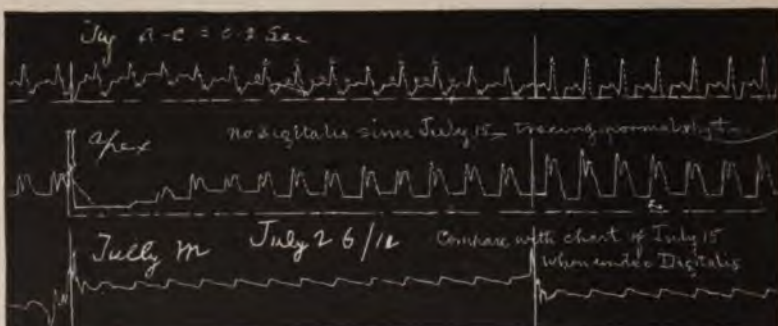 Jug a-c = 0.2 Sec
apex
no digitalis since July 15 – tracing normal
Tully M July 26/12
Compare with chart of July 15
when under Digitalis